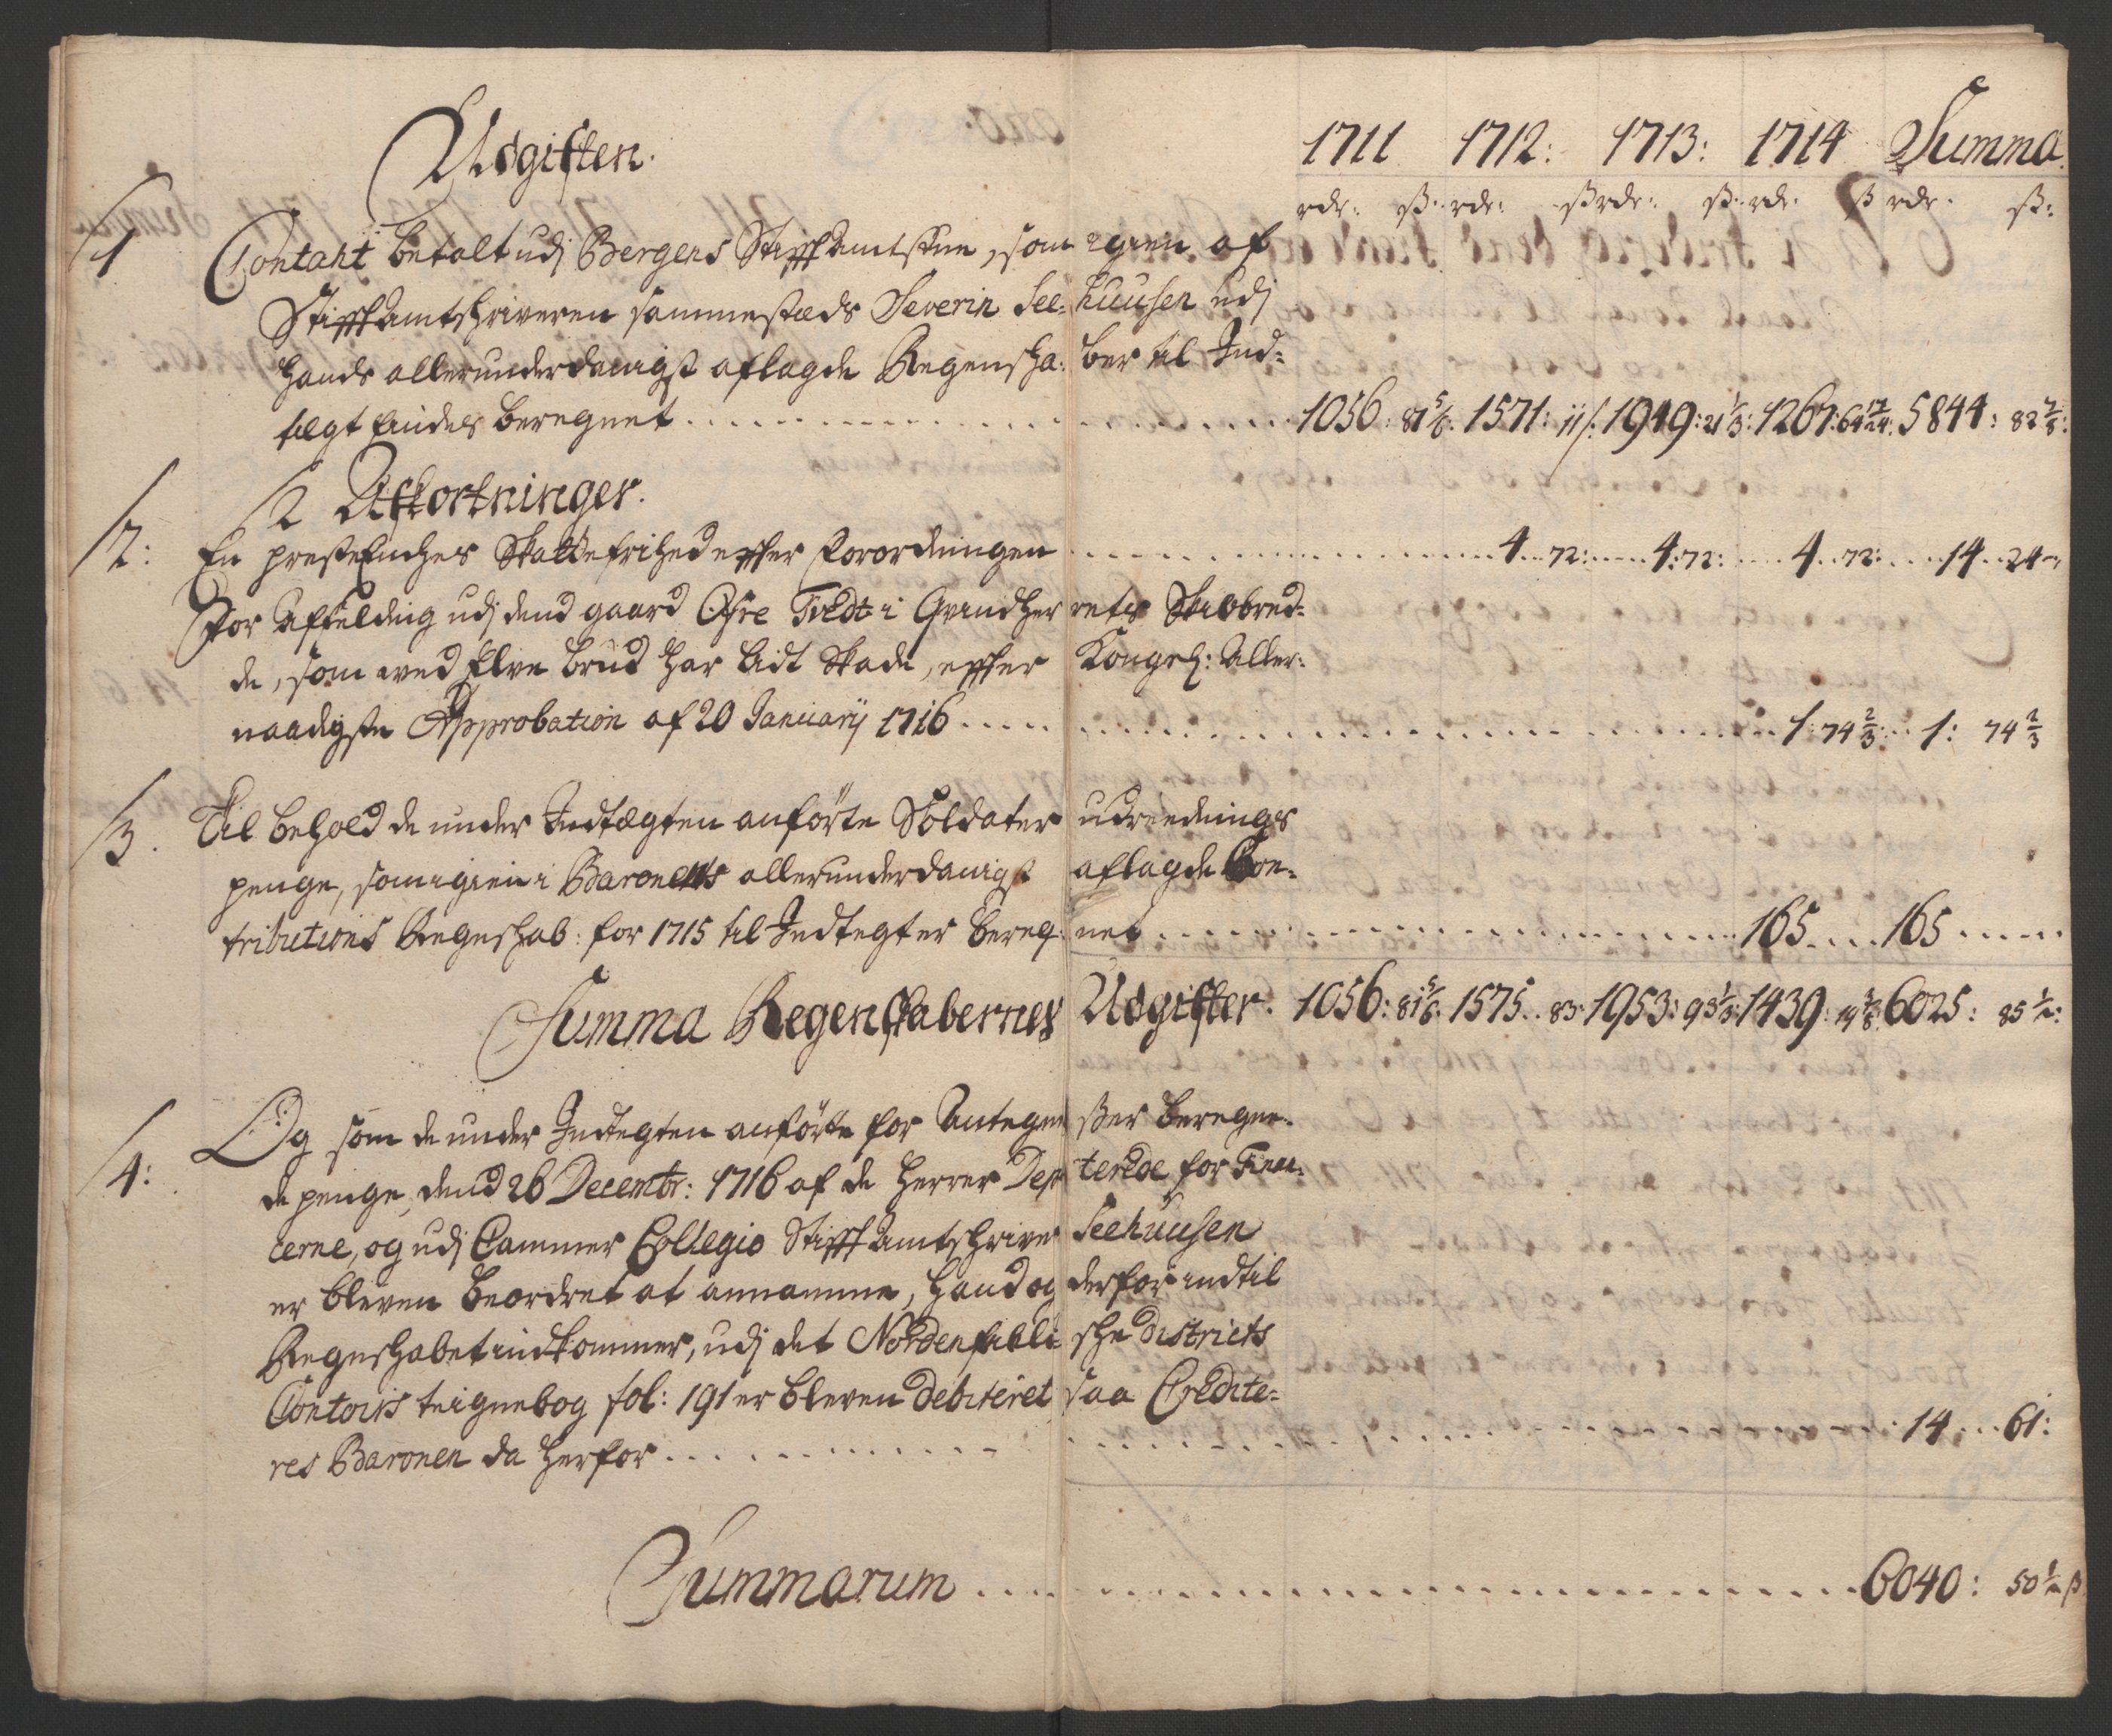 Udgiften.
1711 1712: 1713: 1714 Summa.
rdr: ß: rdr: ß rdr: ß: rdr: ß rdr: ß:
1 Contant betalt udj Bergens Stifftamtstue, som igien af
Stifftamtschriveren sammestæds Severin See-huusen udj
hands allerunderdanigst aflagde Regenscha-ber til Ind-
tægt findes beregnet 1056: 81 5/6: 1571: 11 ß: 1949: 21 1/3: 1267: 64 17/24: 5844: 82 7/8:
2 Afkortninger.
2: En præste Enches Skattefrihed effter Forordningen 4 72: 4: 72: 4 72: 14 24
For Affælding udj dend gaard Øfre Tvedt i Qvindherrets Skibbred-
de, som ved Elve brud har lidt Skade, effter Kongel: Aller-
naadigste Approbation af 20 Januarij 1716 1: 74 2/3: 1: 74 2/3
3. Til behold de under Indtægten anførte Soldater udreednings
penge, som igien i Baronens allerunderdanigst aflagde Con-
tributions Regnschab: for 1715 til Indtegt er bereg-net 165 165
Summa Regenskabernes Udgifter. 1056: 81 5/6: 1575 83: 1953: 93 1/3: 1439: 19 3/8: 6025: 85 1/2:
4: Og som de under Indtegten anførte for Antegnelßer beregne-
de penge, dend 26 Decembr: 1716 af de Herrer Deputerede for Finan-
cerne, og udj Cammer Collegio Stifftamtschriver Seehuusen
er bleven beordret at annamme, hand og derfor indtil
Regnschabet indkommer, udj det Nordenfieldsche districts
Contoirs teignebog fol: 191 er bleven debiteret saa Credite-
res Baronen da herfor 14 61:
Summarum 6040: 50 1/2 ß